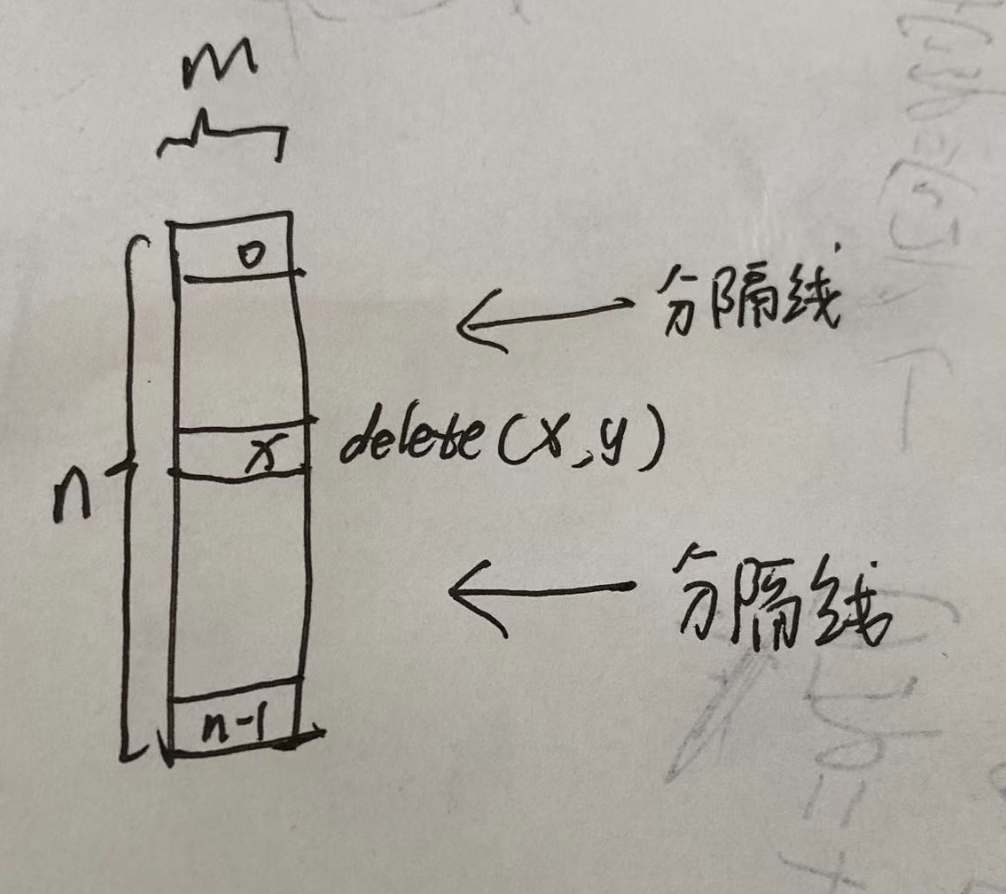 m
0
分隔线
n
x
delete(x,y)
分隔线
n-1